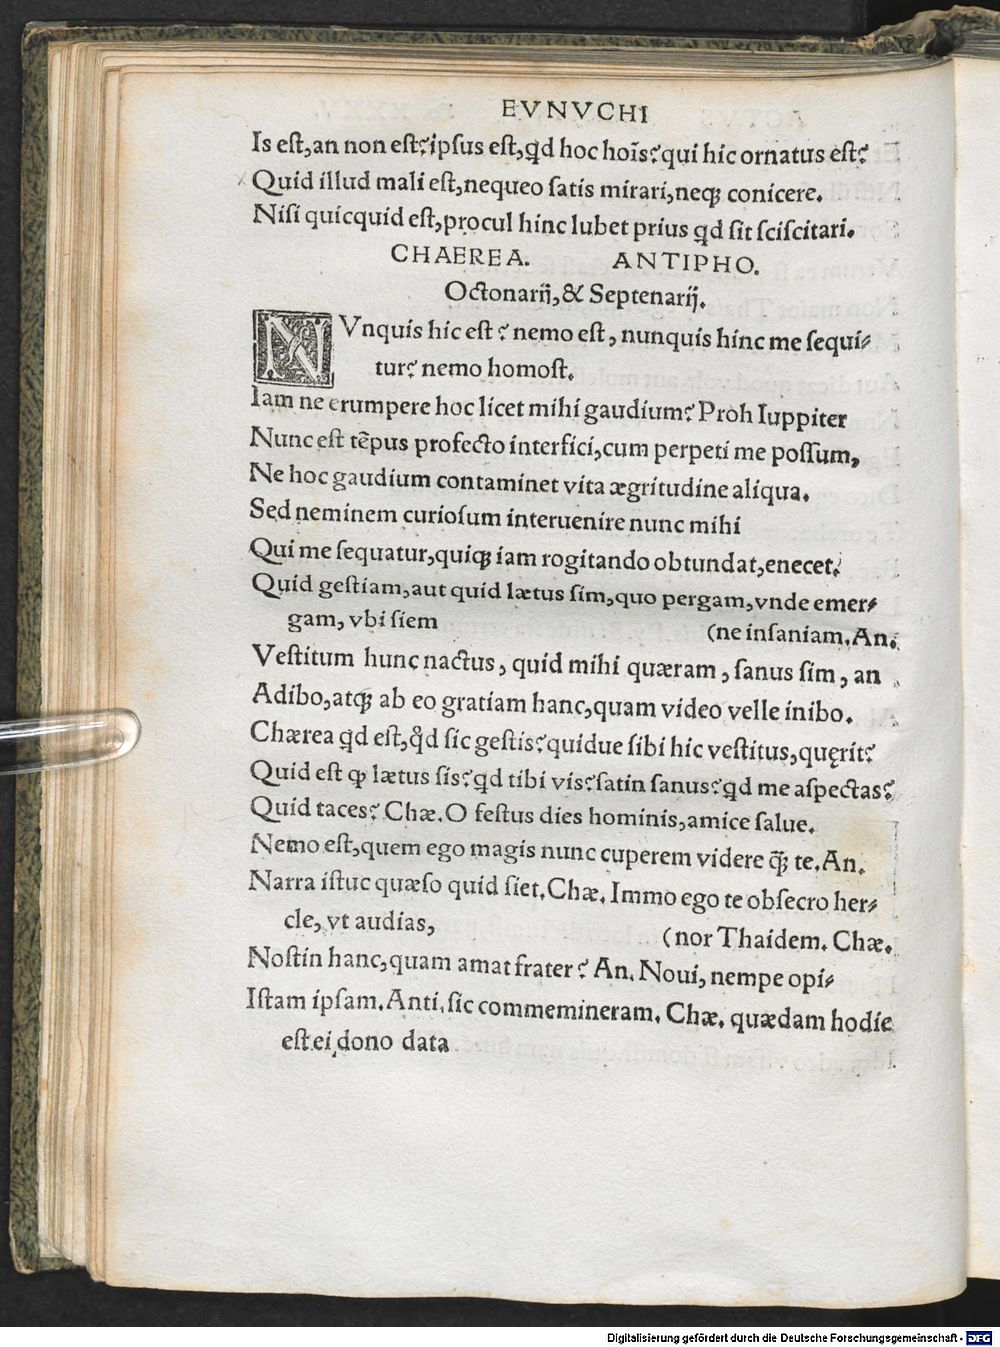 EVNVCHI
Is est,an non est?ipsus est,qd hoc hoīs?qui hic ornatus est?
Quid illud mali est,nequeo satis mirari,neqꝫ conicere.
Nisi quicquid est,procul hinc lubet prius qd sit sciscitari.
CHAEREA. ANTIPHO.
Octonarij,& Septenarij.
NVnquis hic est? nemo est, nunquis hinc me sequi-
tur? nemo homost.
Iam ne erumpere hoc licet mihi gaudium? Proh Iuppiter
Nunc est tēpus profecto interfici,cum perpeti me possum,
Ne hoc gaudium contaminet vita ægritudine aliqua.
Sed neminem curiosum interuenire nunc mihi
Qui me sequatur,quiqꝫ iam rogitando obtundat,enecet.
Quid gestiam,aut quid lætus sim,quo pergam,vnde emer-
gam, vbi siem (ne insaniam.An.
Vestitum hunc nactus, quid mihi quæram, sanus sim, an
Adibo,atqꝫ ab eo gratiam hanc,quam video velle inibo.
Chærea qd est,qd sic gestis?quidue sibi hic vestitus,quęrit?
Quid est ꝙ lætus sis?qd tibi vis?satin sanus?qd me aspectas?
Quid taces? Chæ.O festus dies hominis,amice salue.
Nemo est,quem ego magis nunc cuperem videre q̄ꝫ te.An.
Narra istuc quæso quid siet.Chæ. Immo ego te obsecro her-
cle, vt audias, (nor Thaidem. Chæ.
Nostin hanc,quam amat frater? An. Noui, nempe opi-
Istam ipsam. Anti. sic commemineram. Chæ. quædam hodie
est ei dono data
Digitalisierung gefördert durch die Deutsche Forschungsgemeinschaft - DFG